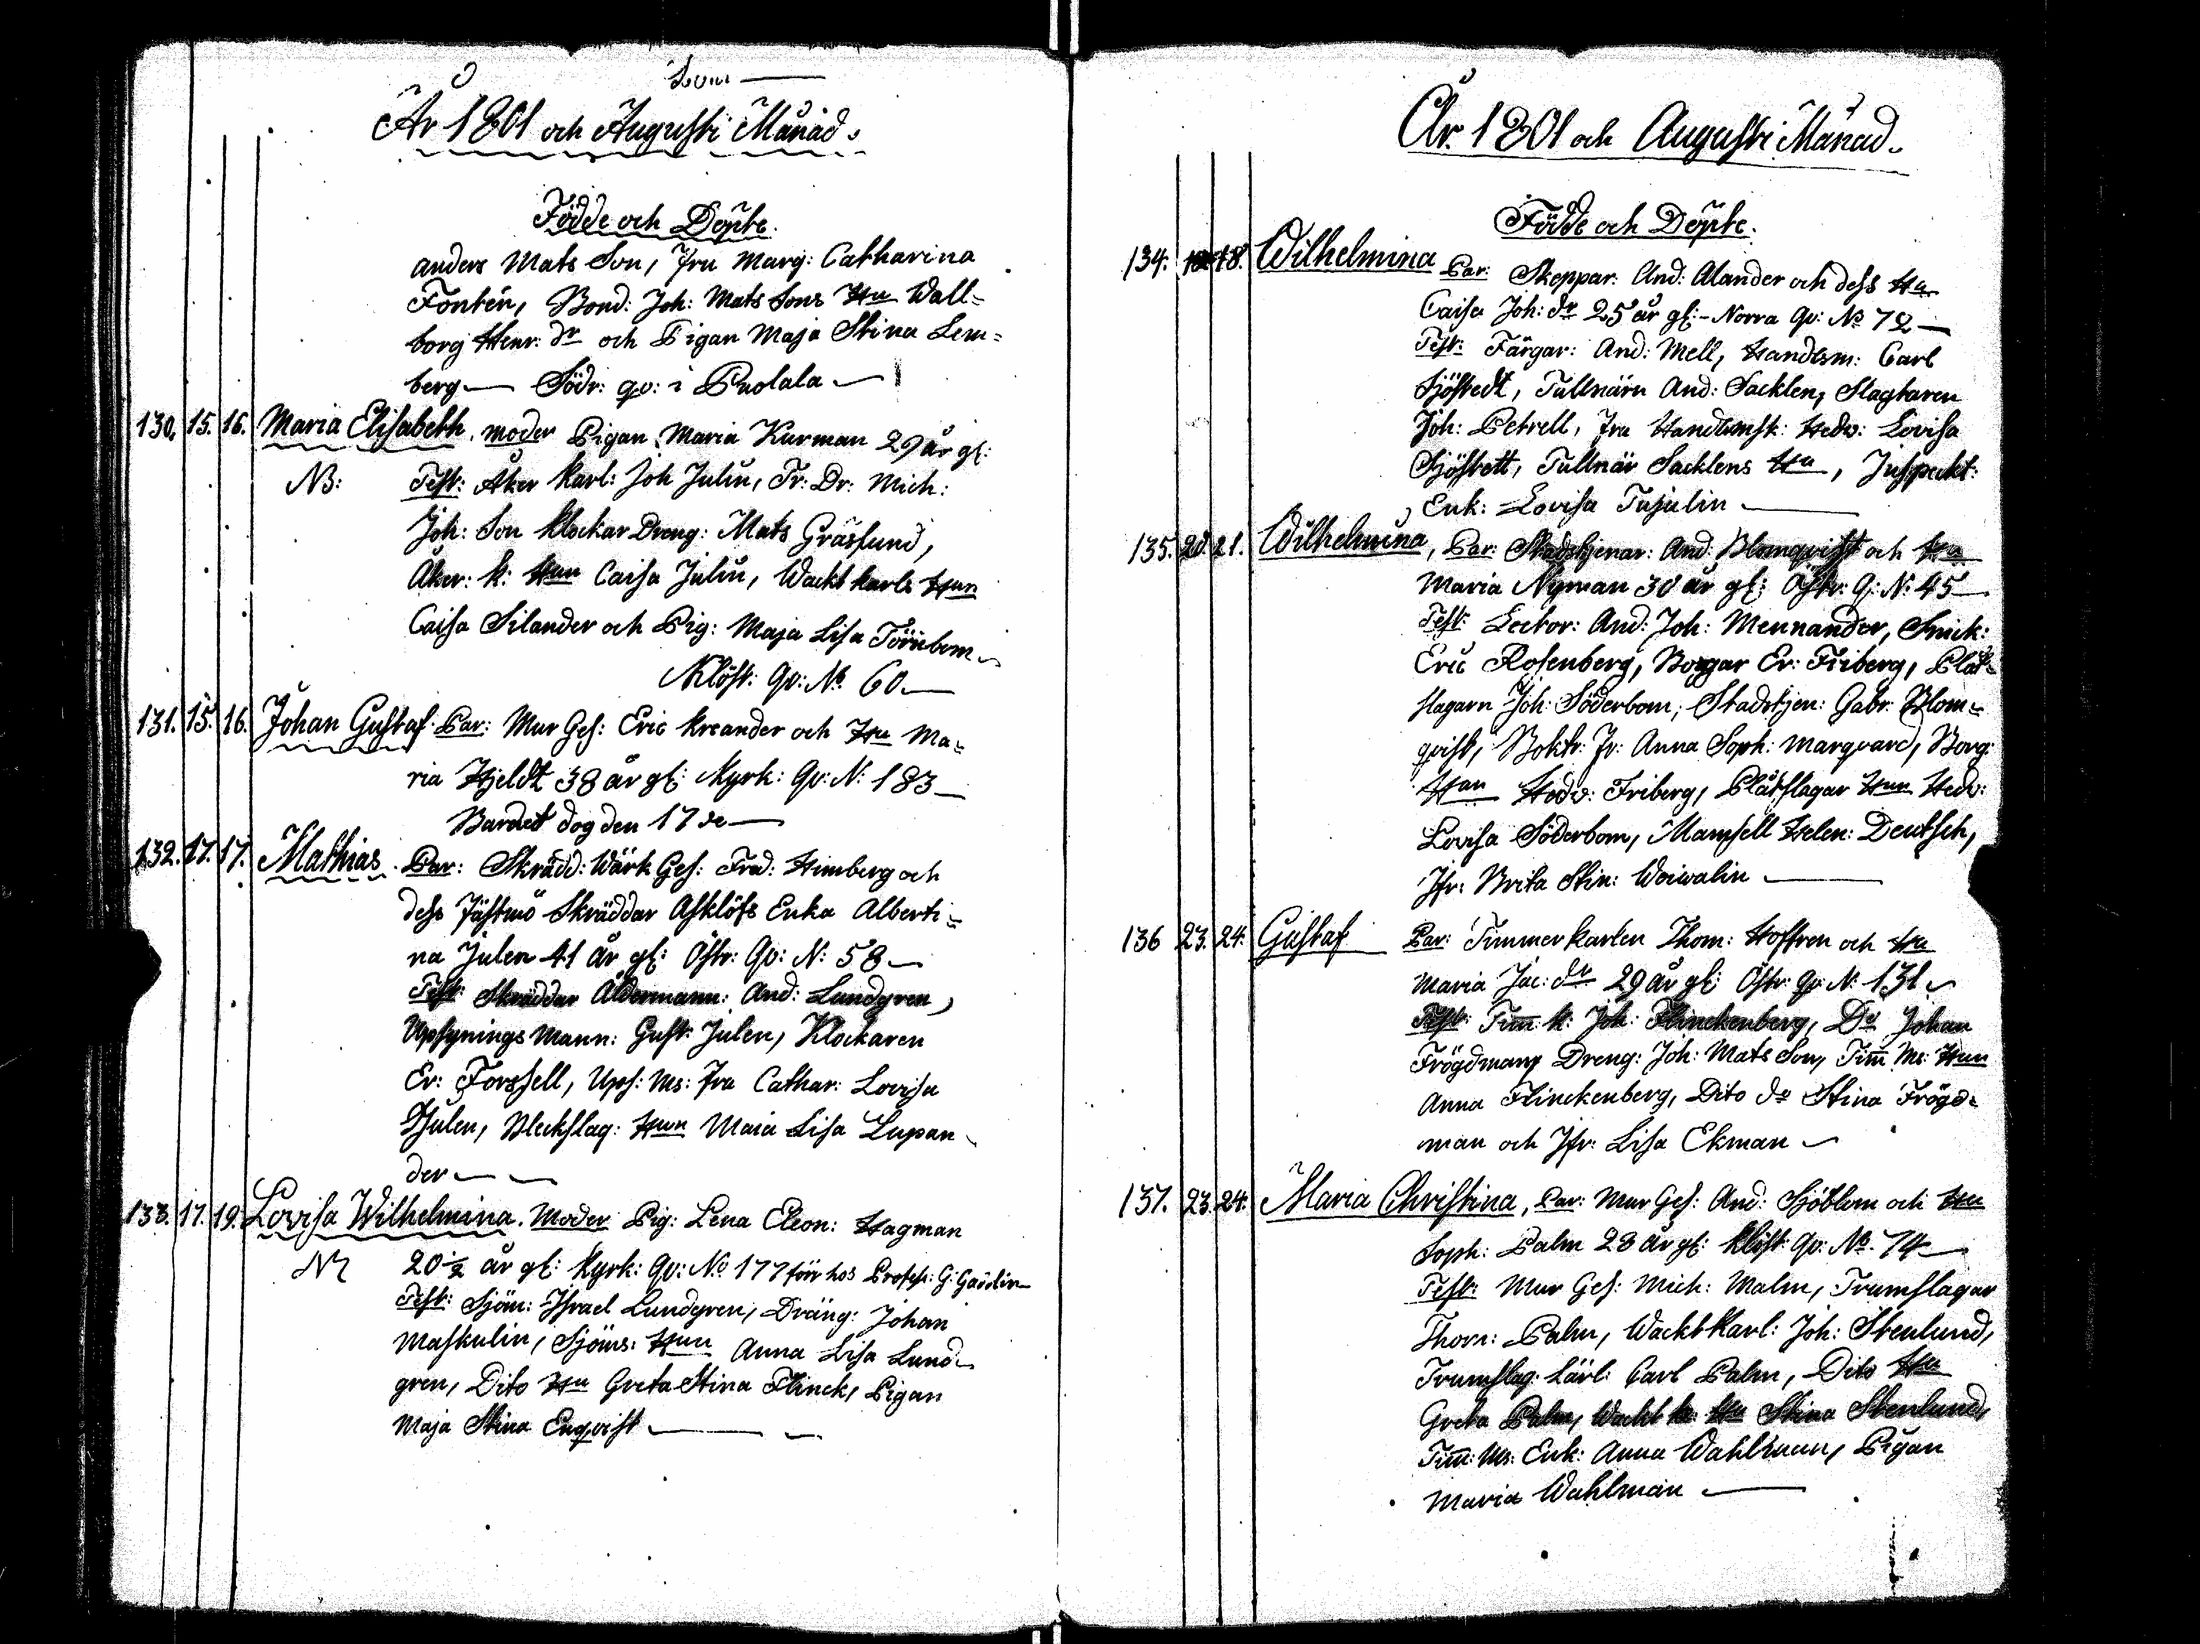 År 1801 och Augusti Månad.
Födde och Döpte.
anders Mats Son, Fru Marg: Catharina
Fontén, Bond: Joh: Mats Sons Hu Wall-
borg Henr: dr och Pigan Maja Stina Lem-
berg — Södr: qv: i Puolala —
130. 15. 16. Maria Elisabeth. moder Pigan Maria Kurman 29 år gl:
NB: Test: Åker Karl: Joh Julin, Tr: Dr: Mich:
Joh: Son Klockar Dreng: Mats Gräslund,
Åker: k: Hun Caisa Julin, Wackt karls Hun
Caisa Silander och Pig: Maja Lisa Törnebom
Klöst: Qv: No 60 —
131. 15. 16. Johan Gustaf. Par: Mur Ges: Eric Kreander och Hu Ma-
ria Hjeldt 38 år gl: Kyrk: Qv: N: 183 —
Barnet dog den 17de —
132. 17. 17. Mathias. Par: Skrädd: Wärk Ges: Fred: Himberg och
dess Fästmö Skräddar Asklöfs Enka Alberti-
na Julen 41 år gl: Östr: Qv: N: 58 —
Test: Skräddar Åldermann: And: Lundgren,
Upsynings Mann: Gust: Julen, Klockaren
Er: Forssell, Ups: Ms: Fru Cathar: Lovisa
Julen, Bleckslag: Hun Maia Lisa Lupan-
der —
133. 17. 19. Lovisa Wilhelmina. Moder Pig: Lena Eleon: Hagman
20 1/2 år gl: Kyrk: Qv: No 177 förr hos Profess: G: Gadolin
Test: Sjöm: Israel Lundgren, Dräng: Johan
Maskulin, Sjöms: Hun Anna Lisa Lund-
gren, Dito Hu Greta Stina Flinck, Pigan
Maja Stina Enqvist —
År 1801 och Augusti Månad.
Födde och Döpte.
134. 18. Wilhelmina Par: Skeppar: And: Alander och dess Hu
Caisa Joh: dr 25 år gl: - Norra Qv: No 72 —
Test: Färgar: And: Mell, Handlsm: Carl
Sjöstedt, Tullnärn And: Sacklen, Slagtaren
Joh: Petrell, Fru Handlsmsk: Hedv: Lovisa
Sjöstett, Tullnär Sacklens Hu, Inspekt:
Enk: Lovisa Tujulin —
135. 20. 21. Wilhelmina, Par: Stadstjenar: And: Blomqvist och Hu
Maria Nyman 38 år gl: Östr: Q: N: 45 —
Test: Lector: And: Joh: Mennander, Snick:
Eric Rosenberg, Borgar Er: Friberg, Plåt-
slagarn Joh: Söderbom, Stadstjen: Gabr: Blom-
qvist, Boktr: Fr: Anna Soph: Marqvard, Borg:
Hun Hedv: Friberg, Plåtslagar Hun Hedv:
Lovisa Söderbom, Mamsell Helen: Deutsch,
Jfr: Brita Stin: Weiwalin —
136 23. 24. Gustaf Par: Timmerkarlen Thom: Hoffren och Hu
Maria Jac: dr 29 år gl: Östr: Qv: N: 131 —
Test: Tim: k: Joh: Flinckenberg, Do Johan
Frögdman, Dreng: Joh: Mats Son, Tim Ms: Hun
Anna Flinckenberg, Dito do Stina Frögd-
man och Jfr: Lisa Ekman —
137. 23. 24. Maria Christina, Par: Mur Ges: And: Sjöblom och Hu
Soph: Palm 28 år gl: Klöst: Qv: No 74 —
Test: Mur Ges: Mich: Malm, Trumslagar
Thom: Palm, Wackt Karl: Joh: Stenlund,
Trumslag: Lärl: Carl Palm, Dito Hu
Greta Palm, Wackt k: Hu Stina Stenlund,
Tim: Ms: Enk: Anna Wahlman, Pigan
Maria Wahlman —